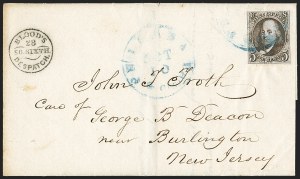 BLOOD'S
28
DESPATCH
5 5
John J. Froth
Care of
George B. Deacon
near Burlington
New Jersey